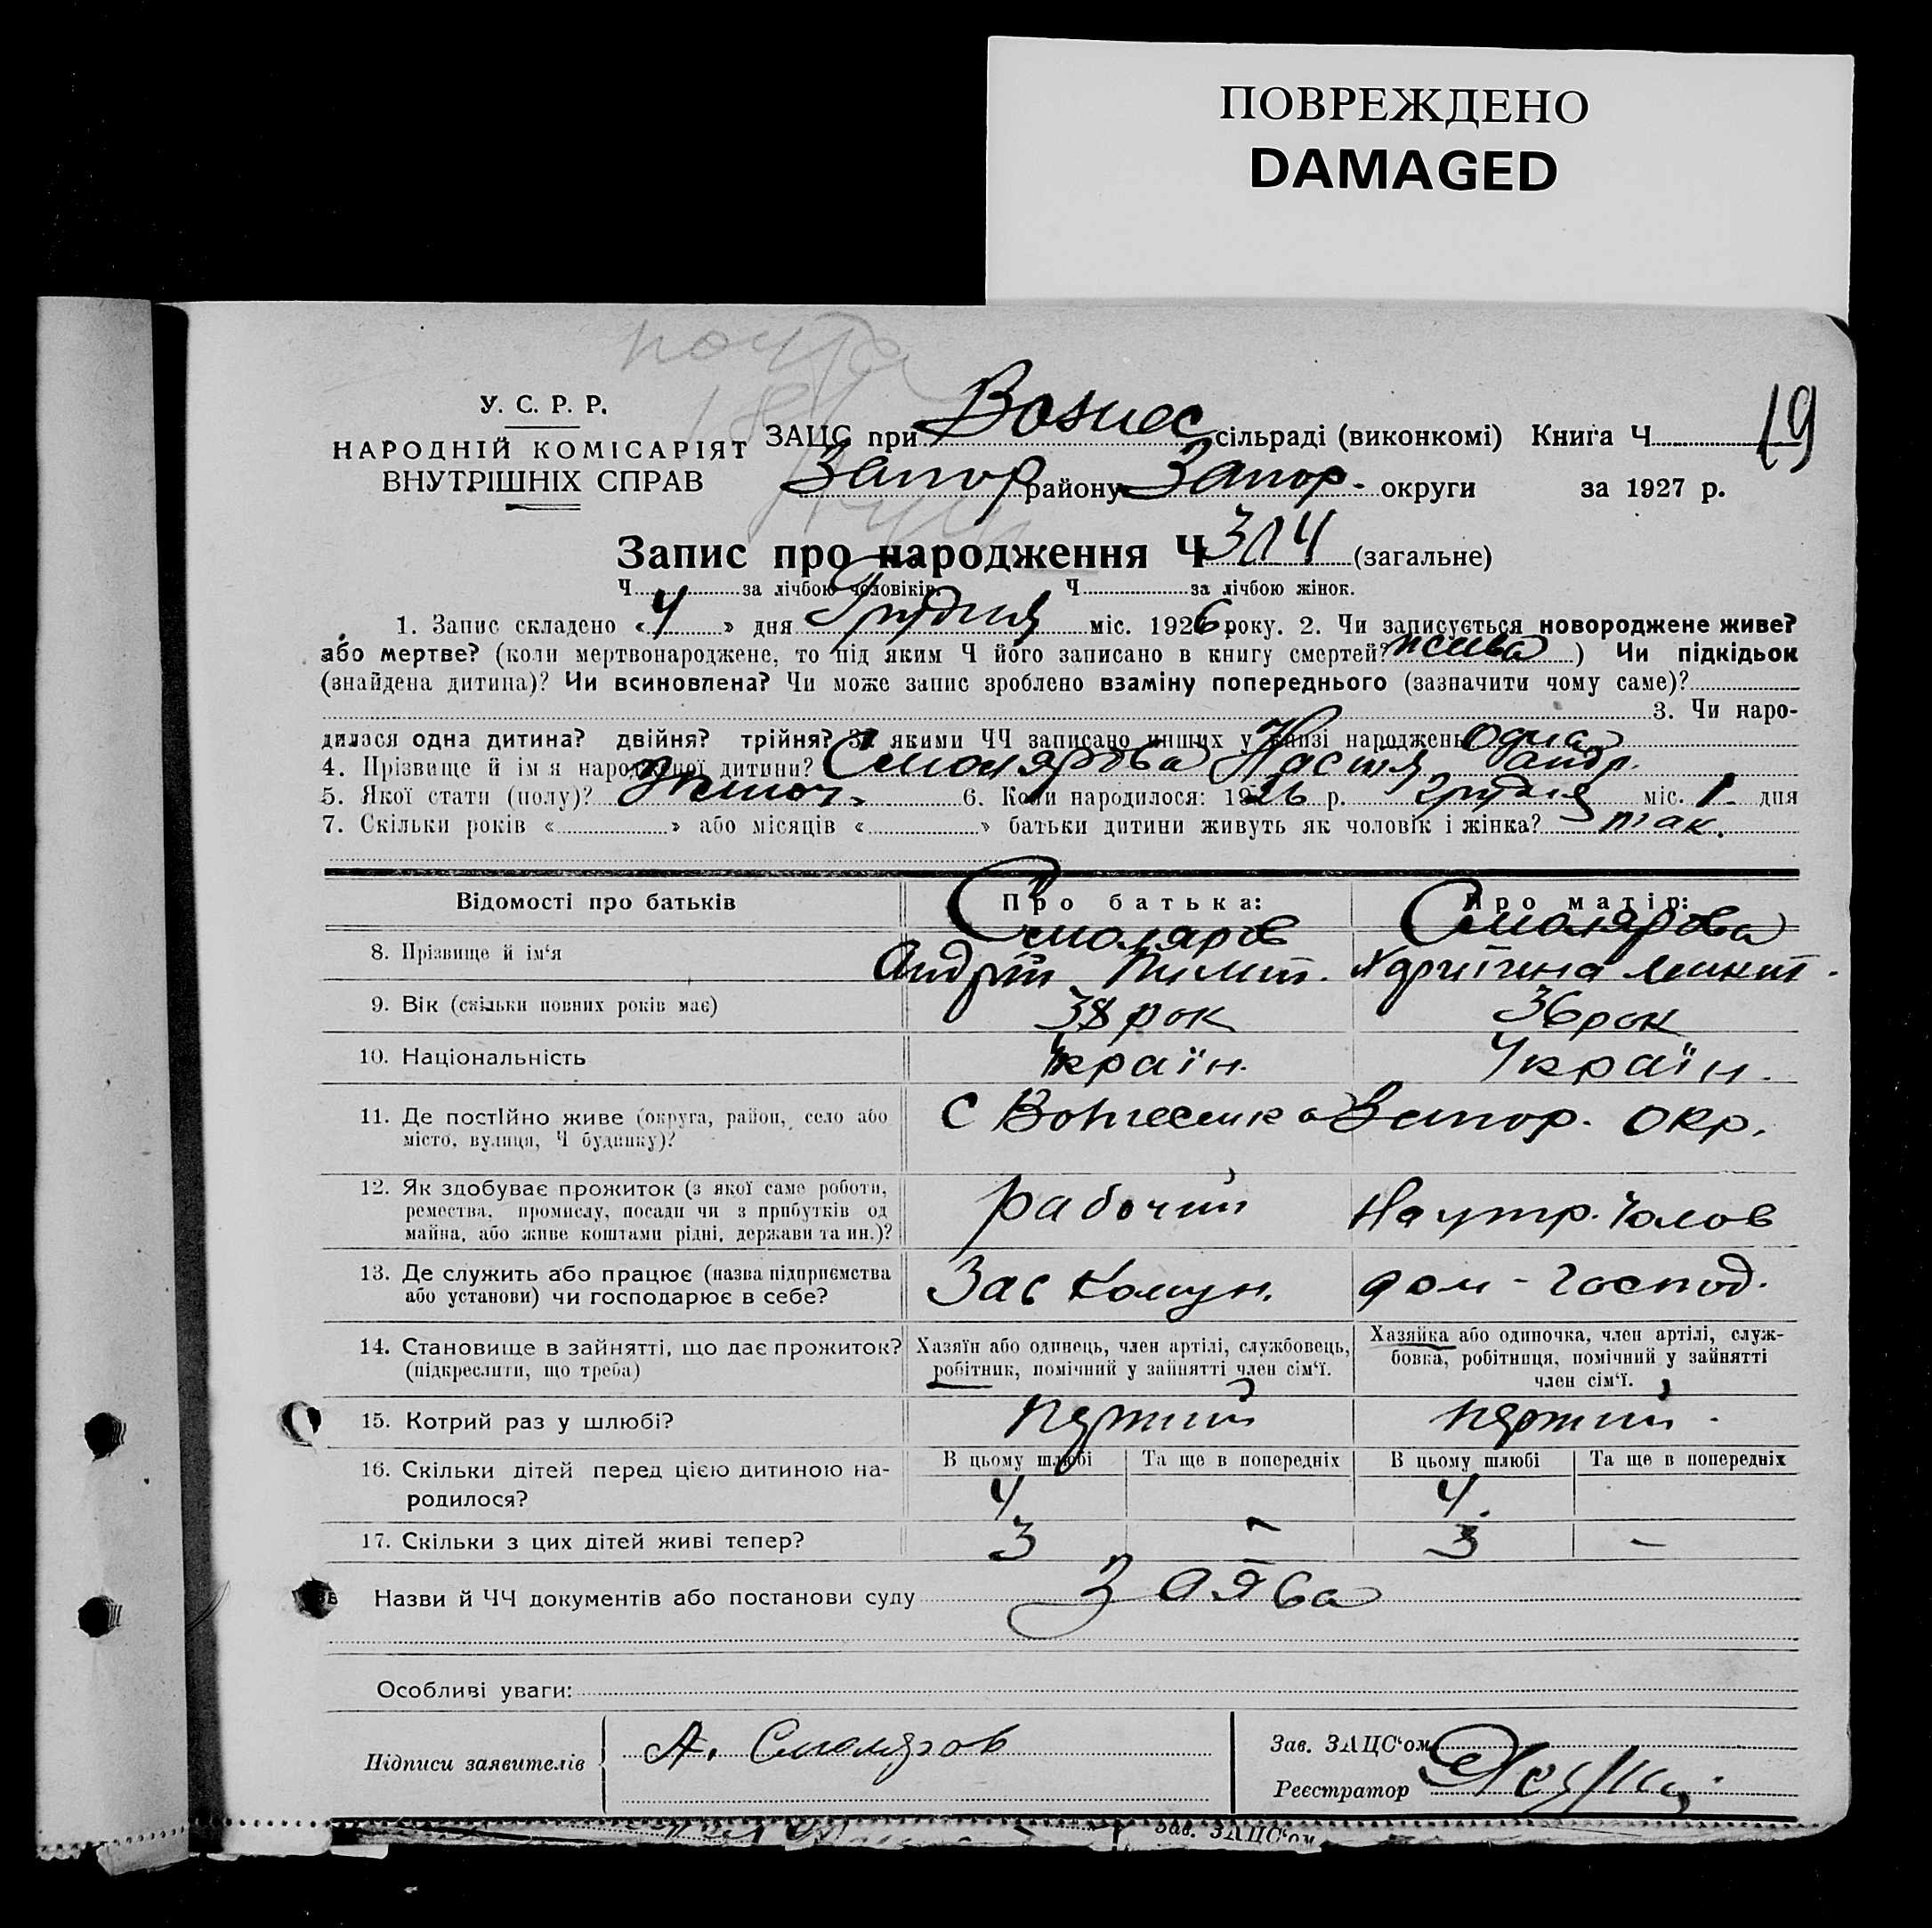 ПОВРЕЖДЕНО
DAMAGED
почта
У. С. Р. Р.
НАРОДНІЙ КОМІСАРІЯТ
ВНУТРІШНІХ СПРАВ
ЗАЦС при Вознес сільраді (виконкомі) Книга Ч 19
Запор району Запор. округи за 1927 р.
Запис про народження Ч 314 (загальне)
Ч за лічбою чоловіків. Ч за лічбою жінок.
1. Запис складено «4» дня Грудня міс. 1926 року. 2. Чи записується новороджене живе?
або мертве? (коли мертвонароджене, то під яким Ч його записано в книгу смертей? жива) Чи підкідьок
(знайдена дитина)? Чи всиновлена? Чи може запис зроблено взаміну попереднього (зазначити чому саме)?
3. Чи наро-
дилася одна дитина? двійня? трійня? За якими ЧЧ записано инших у книзі народжень Одна
4. Прізвище й ім'я народженої дитини? Смолярова Настя Андр.
5. Якої стати (полу)? Жіноч. 6. Коли народилося: 1926 р. Грудня міс. 1 дня
7. Скільки років « » або місяців « » батьки дитини живуть як чоловік і жінка? так.
Відомості про батьків Про батька: Про матір:
8. Прізвище й ім'я Смоляров Смолярова
Андрій Пилип. Микит.
9. Вік (скільки повних років має) 38 рок 36 рок
10. Національність Україн. Україн.
11. Де постійно живе (округа, район, село або
місто, вулиця, Ч будинку)? С Вознесенка Запор. окр.
12. Як здобуває прожиток (з якої саме роботи,
ремества, промислу, посади чи з прибутків од
майна, або живе коштами рідні, держави та ин.)? рабочий На утр. Чолов
13. Де служить або працює (назва підприємства
або установи) чи господарює в себе? Зав Комун. дом - господ.
14. Становище в зайнятті, що дає прожиток?
(підкреслити, що треба)
Хазяїн або одинець, член артілі, службовець,
робітник, помічний у зайнятті член сім'ї.
Хазяйка або одиночка, член артілі, служ-
бовка, робітниця, помічний у зайнятті
член сім'ї.
15. Котрий раз у шлюбі? первий первий.
16. Скільки дітей перед цією дитиною на-
родилося?
В цьому шлюбі Та ще в попередніх В цьому шлюбі Та ще в попередніх
4 4.
17. Скільки з цих дітей живі тепер? 3 - 3 -
Назви й ЧЧ документів або постанови суду Заява
Особливі уваги:
Підписи заявителів А. Смоляров
Зав. ЗАЦС'ом
Реєстратор
Зав. ЗАЦС'ом